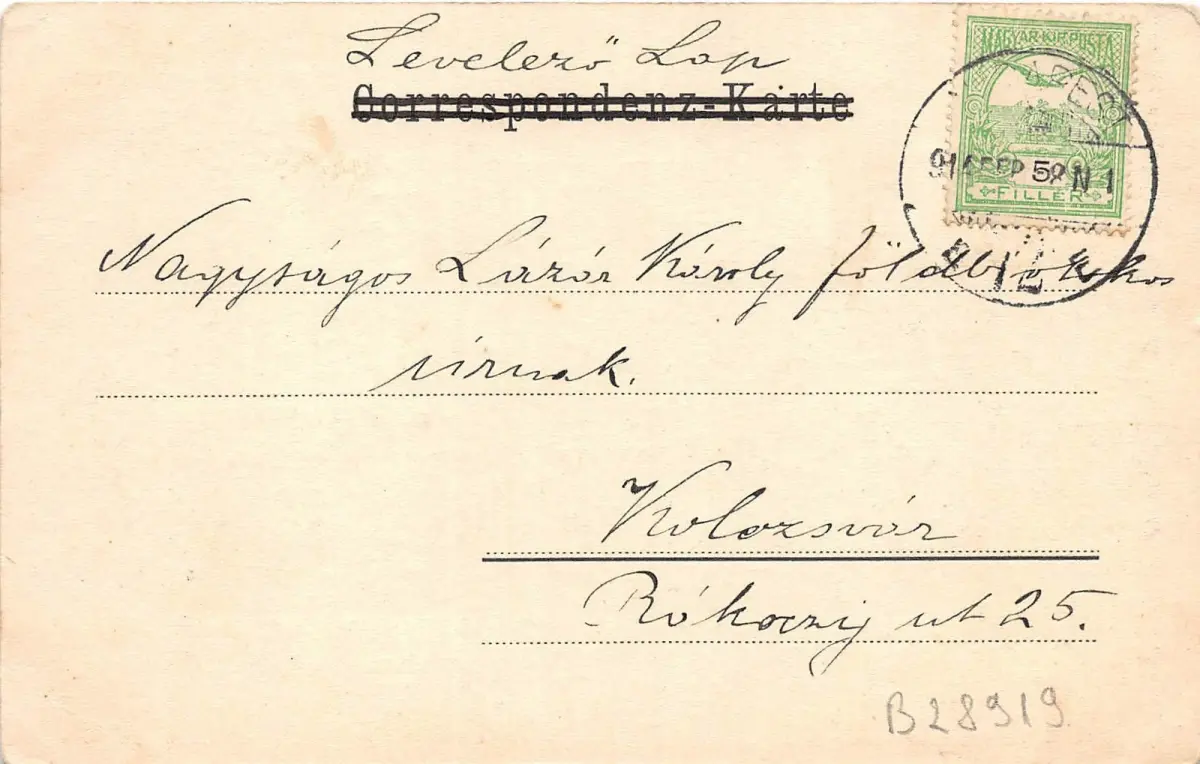 Levelező Lap
Correspondenz-Karte
MAGYAR KIR. POSTA
FILLÉR
Nagyságos Lázár Károly földbirtokos
úrnak.
Kolozsvár
Rákoczy ut 25.
B28919